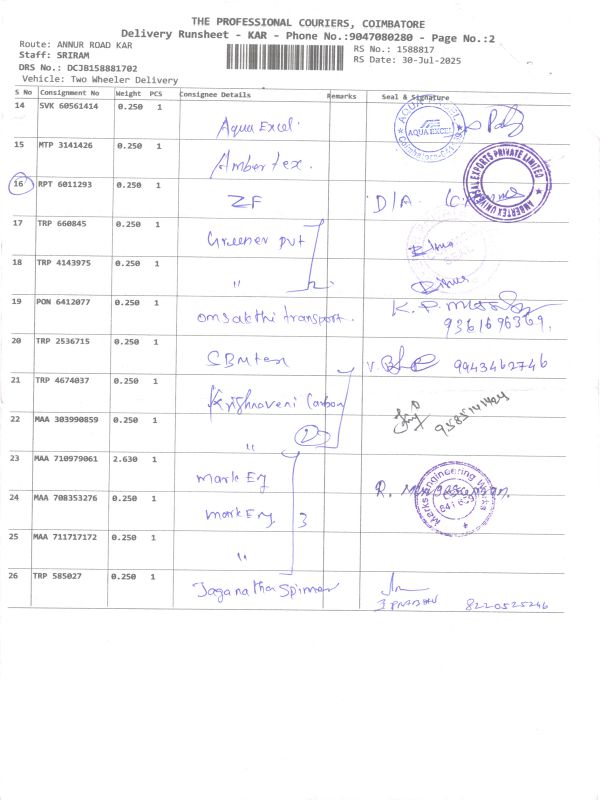 THE PROFESSIONAL COURIERS, COIMBATORE
Delivery Runsheet - KAR - Phone No.:9047080280 - Page No.:2
Route: ANNUR ROAD KAR
RS No.: 1588817
Staff: SRIRAM
RS Date: 30-Jul-2025
DRS No.: DCJB158881702
Vehicle: Two Wheeler Delivery
S No Consignment No Weight PCS Consignee Details Remarks Seal & Signature
14 SVK 60561414 0.250 1 Aqua Excel AQUA EXCEL
15 MTP 3141426 0.250 1 Ambertex. AMBERTEX UNIVERSAL EXPORTS PRIVATE LIMITED
16 RPT 6011293 0.250 1 ZF D/A
17 TRP 660845 0.250 1 Greener pvt
18 TRP 4143975 0.250 1 "
19 PON 6412077 0.250 1 omsakthi transport. K. P.
9361696369.
20 TRP 2536715 0.250 1 SBMtex V. 9943462746
21 TRP 4674037 0.250 1 Krishnaveni Carbon 9585141424
22 MAA 303990859 0.250 1 " 2
23 MAA 710979061 2.630 1 mark Eg R.
Marks Engineering Works
24 MAA 708353276 0.250 1 mark Eg 3
25 MAA 711717172 0.250 1 "
26 TRP 585027 0.250 1 Jaganatha Spinner
J PRABHU 8220525246